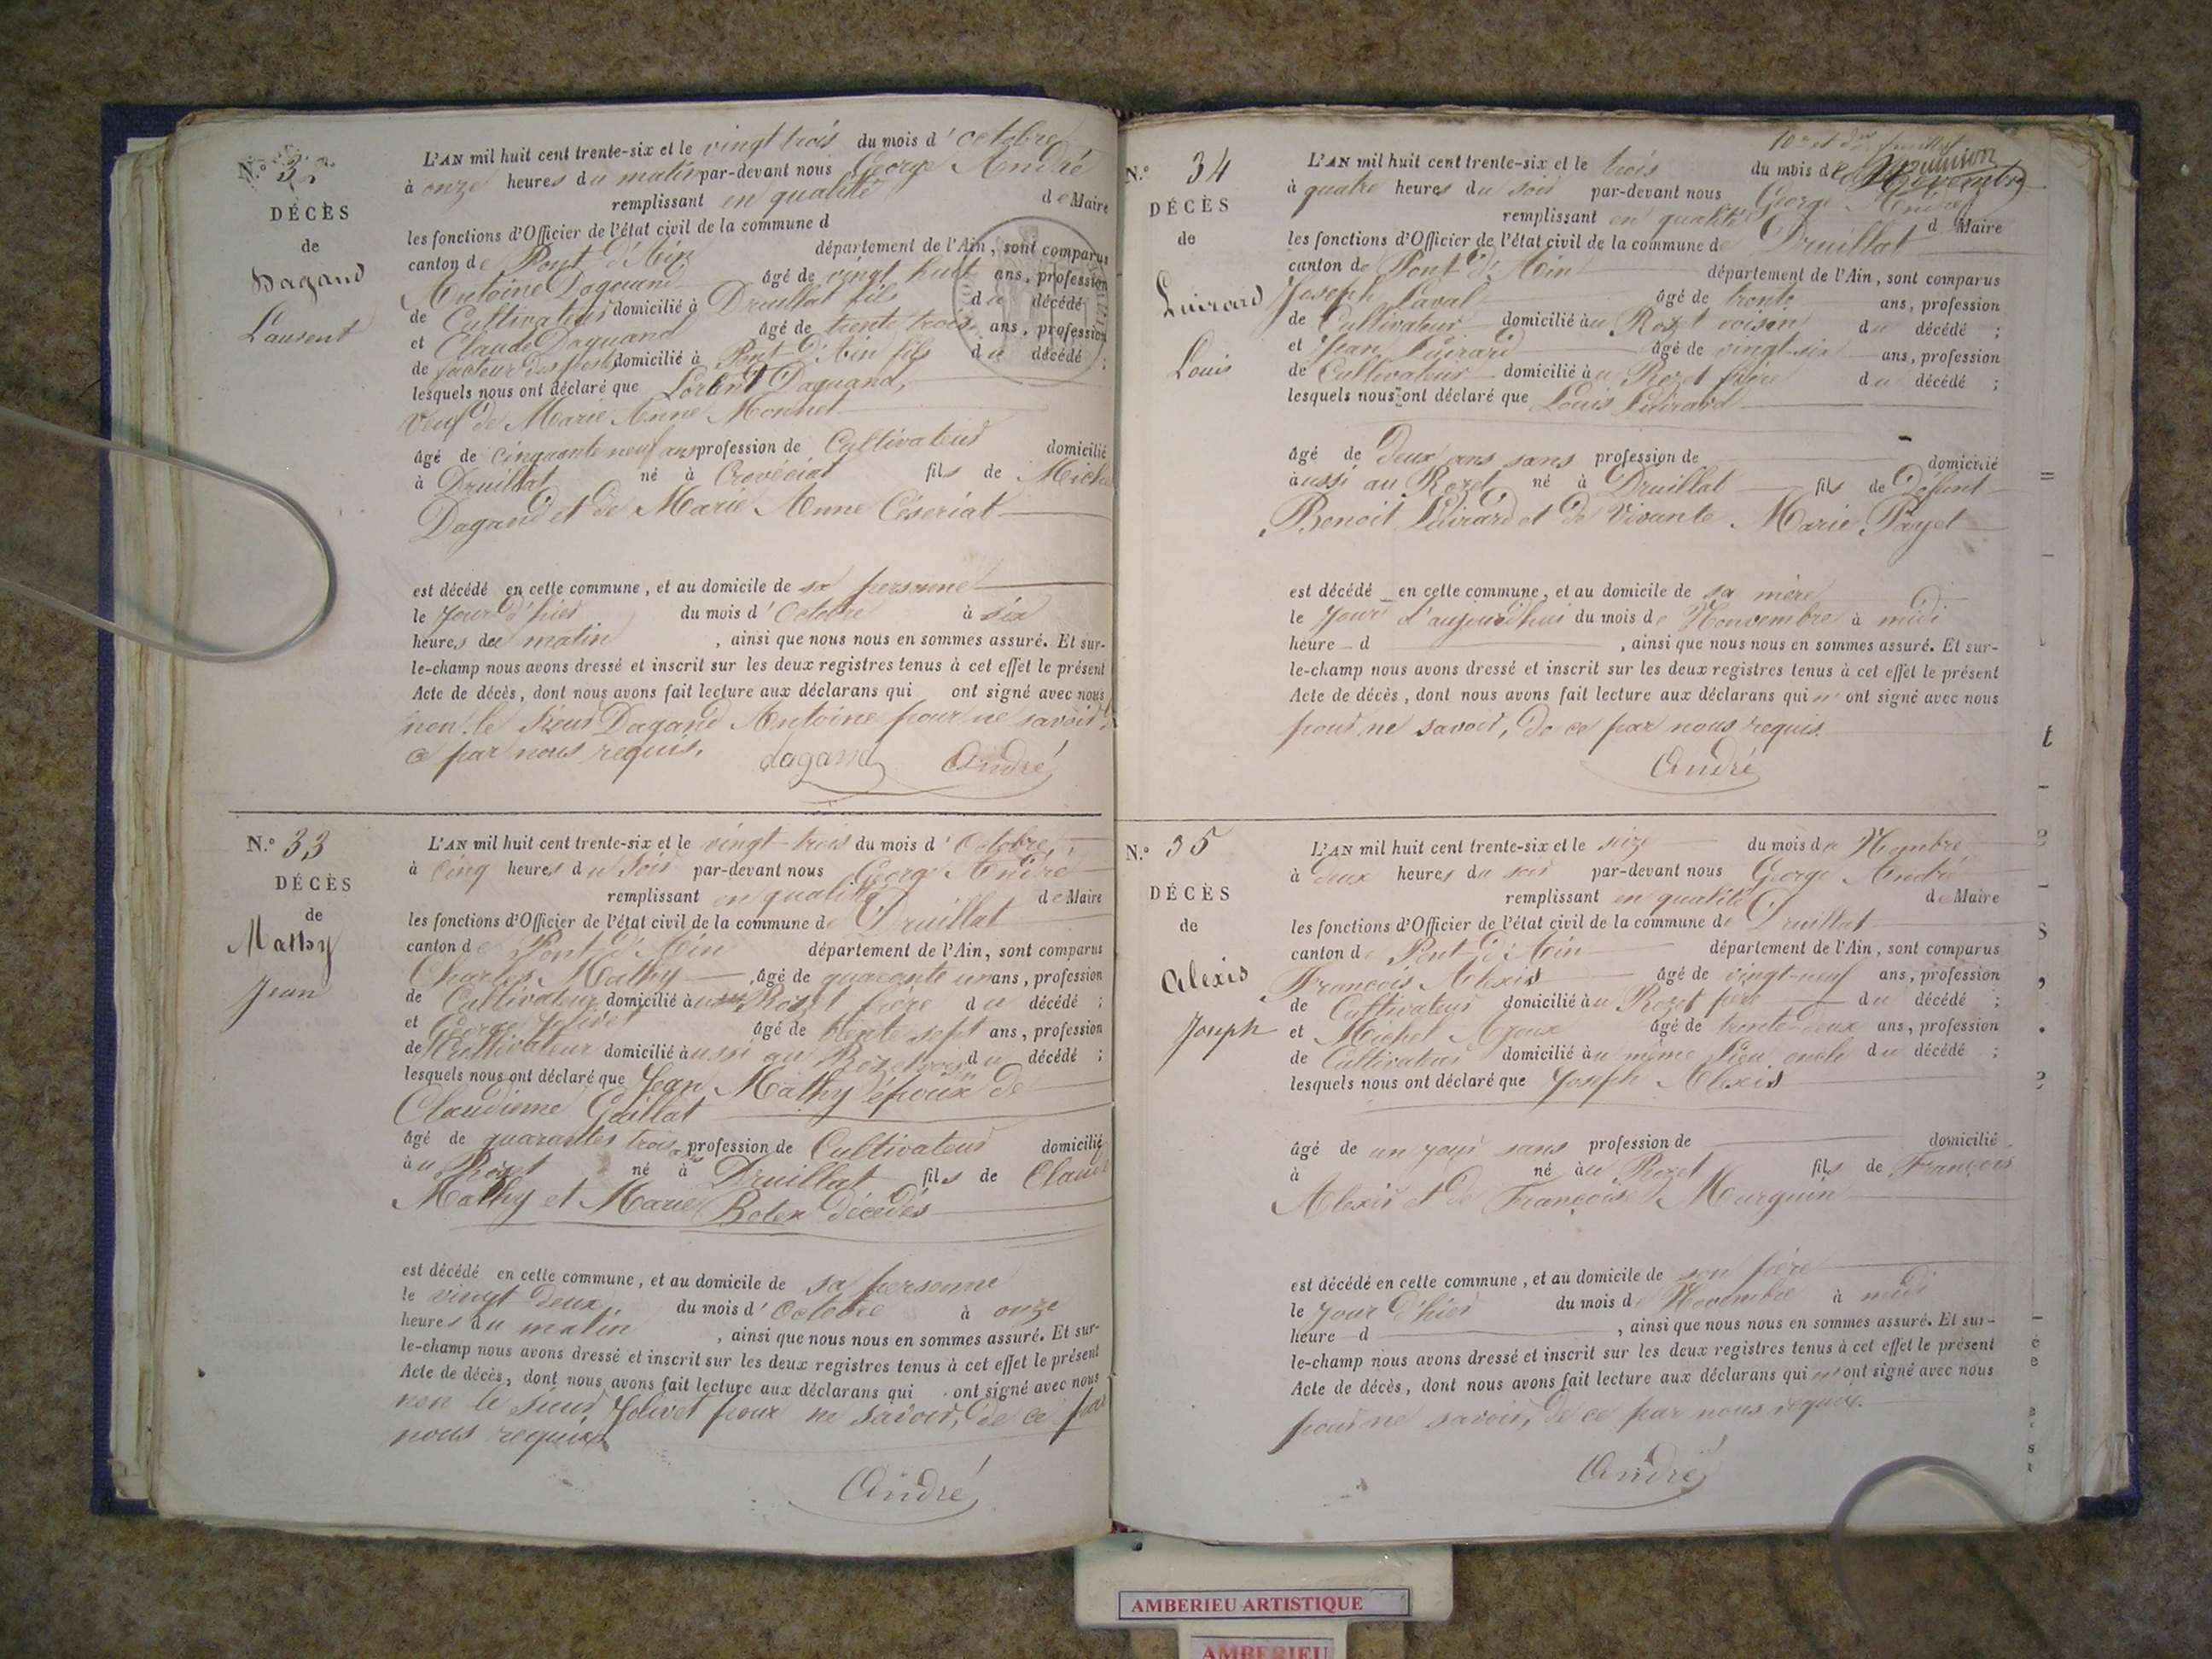 N.° 32
DÉCÈS
de
Dagand
Laurent
L'AN mil huit cent trente-six et le vingt trois du mois d'octobre
à onze heures du matin par-devant nous George André
remplissant en qualité de Maire
les fonctions d'Officier de l'état civil de la commune d
canton de Pont d'Ain département de l'Ain, sont comparus
Antoine Dagouand âgé de vingt huit ans, profession
de Cultivateur domicilié à Druillat fils du décédé
et Claude Daguand âgé de trente trois ans, profession
de facteur des postes domicilié à Pont d'Ain fils du décédé ;
lesquels nous ont déclaré que Lorent Daguand,
Veuf de Marie Anne Monnet
âgé de cinquante neuf ans profession de Cultivateur domicilié
à Druillat né à fils de Michel
Dagand et de Marie Anne Céseriat
est décédé en cette commune, et au domicile de sa personne
le Jour d'hier du mois d'Octobre à six
heures du matin , ainsi que nous nous en sommes assuré. Et sur-
le-champ nous avons dressé et inscrit sur les deux registres tenus à cet effet le présent
Acte de décès, dont nous avons fait lecture aux déclarans qui ont signé avec nous
non le Sieur Dagand Antoine pour ne savoir,
ce par nous requis.
dagand André
N.° 33
DÉCÈS
de
Mathy
Jean
L'AN mil huit cent trente-six et le vingt trois du mois d'Octobre,
à cinq heures du soir par-devant nous George André
remplissant en qualité de Maire
les fonctions d'Officier de l'état civil de la commune de Druillat
canton de Pont d'Ain département de l'Ain, sont comparus
Charles Mathy âgé de quarante un ans, profession
de Cultivateur domicilié au Rozet frère du décédé ;
et George Jolivet âgé de trente sept ans, profession
de Cultivateur domicilié aussi au Rozet voisin du décédé ;
lesquels nous ont déclaré que Jean Mathy époux de
Claudienne Gaillat
âgé de quarantes trois ans profession de Cultivateur domicilié
au Rozet né à Druillat fils de Claude
Mathy et Marie Bolex décédés
est décédé en cette commune, et au domicile de sa personne
le vingt deux du mois d'Octobre à onze
heures du matin , ainsi que nous nous en sommes assuré. Et sur-
le-champ nous avons dressé et inscrit sur les deux registres tenus à cet effet le présent
Acte de décès, dont nous avons fait lecture aux déclarans qui ont signé avec nous
non le Sieur Jolivet pour ne savoir, de ce par
nous requis
André
N.° 34
DÉCÈS
de
Louis
L'AN mil huit cent trente-six et le trois du mois de Novembre
à quatre heures du soir par-devant nous George André
remplissant en qualité d Maire
les fonctions d'Officier de l'état civil de la commune de Druillat
canton de Pont d'Ain département de l'Ain, sont comparus
Joseph Laval âgé de trente ans, profession
de Cultivateur domicilié au Rozet voisin du décédé ;
et Jean âgé de vingt-six ans, profession
de Cultivateur domicilié au Rozet frère du décédé ;
lesquels nous ont déclaré que Louis
âgé de deux ans sans profession de domicilié
aussi au Rozet né à Druillat fils de Défunt
Benoit et de Vivante Marie Payet
est décédé en cette commune, et au domicile de sa mère
le Jour d'aujourd'hui du mois de Nonvembre à midi
heure d , ainsi que nous nous en sommes assuré. Et sur-
le-champ nous avons dressé et inscrit sur les deux registres tenus à cet effet le présent
Acte de décès, dont nous avons fait lecture aux déclarans qui n'ont signé avec nous
pour ne savoir, de ce par nous requis.
André
N.° 35
DÉCÈS
de
Alexis
Joseph
L'AN mil huit cent trente-six et le seize du mois de
à deux heures du soir par-devant nous George André
remplissant en qualité de Maire
les fonctions d'Officier de l'état civil de la commune de Druillat
canton de Pont d'Ain département de l'Ain, sont comparus
François Alexis âgé de vingt-neuf ans, profession
de Cultivateur domicilié au Rozet père du décédé ;
et Michel âgé de trente-deux ans, profession
de Cultivateur domicilié au même Lieu oncle du décédé ;
lesquels nous ont déclaré que Joseph Alexis
âgé de un jour sans profession de domicilié
à né au Rozet fils de François
Alexis et de Françoise Murguin
est décédé en cette commune, et au domicile de son père
le Jour d'hier du mois de Novembre à midi
heure d , ainsi que nous nous en sommes assuré. Et sur-
le-champ nous avons dressé et inscrit sur les deux registres tenus à cet effet le présent
Acte de décès, dont nous avons fait lecture aux déclarans qui n'ont signé avec nous
pour ne savoir, de ce par nous requis.
André
AMBERIEU ARTISTIQUE
AMBERIEU